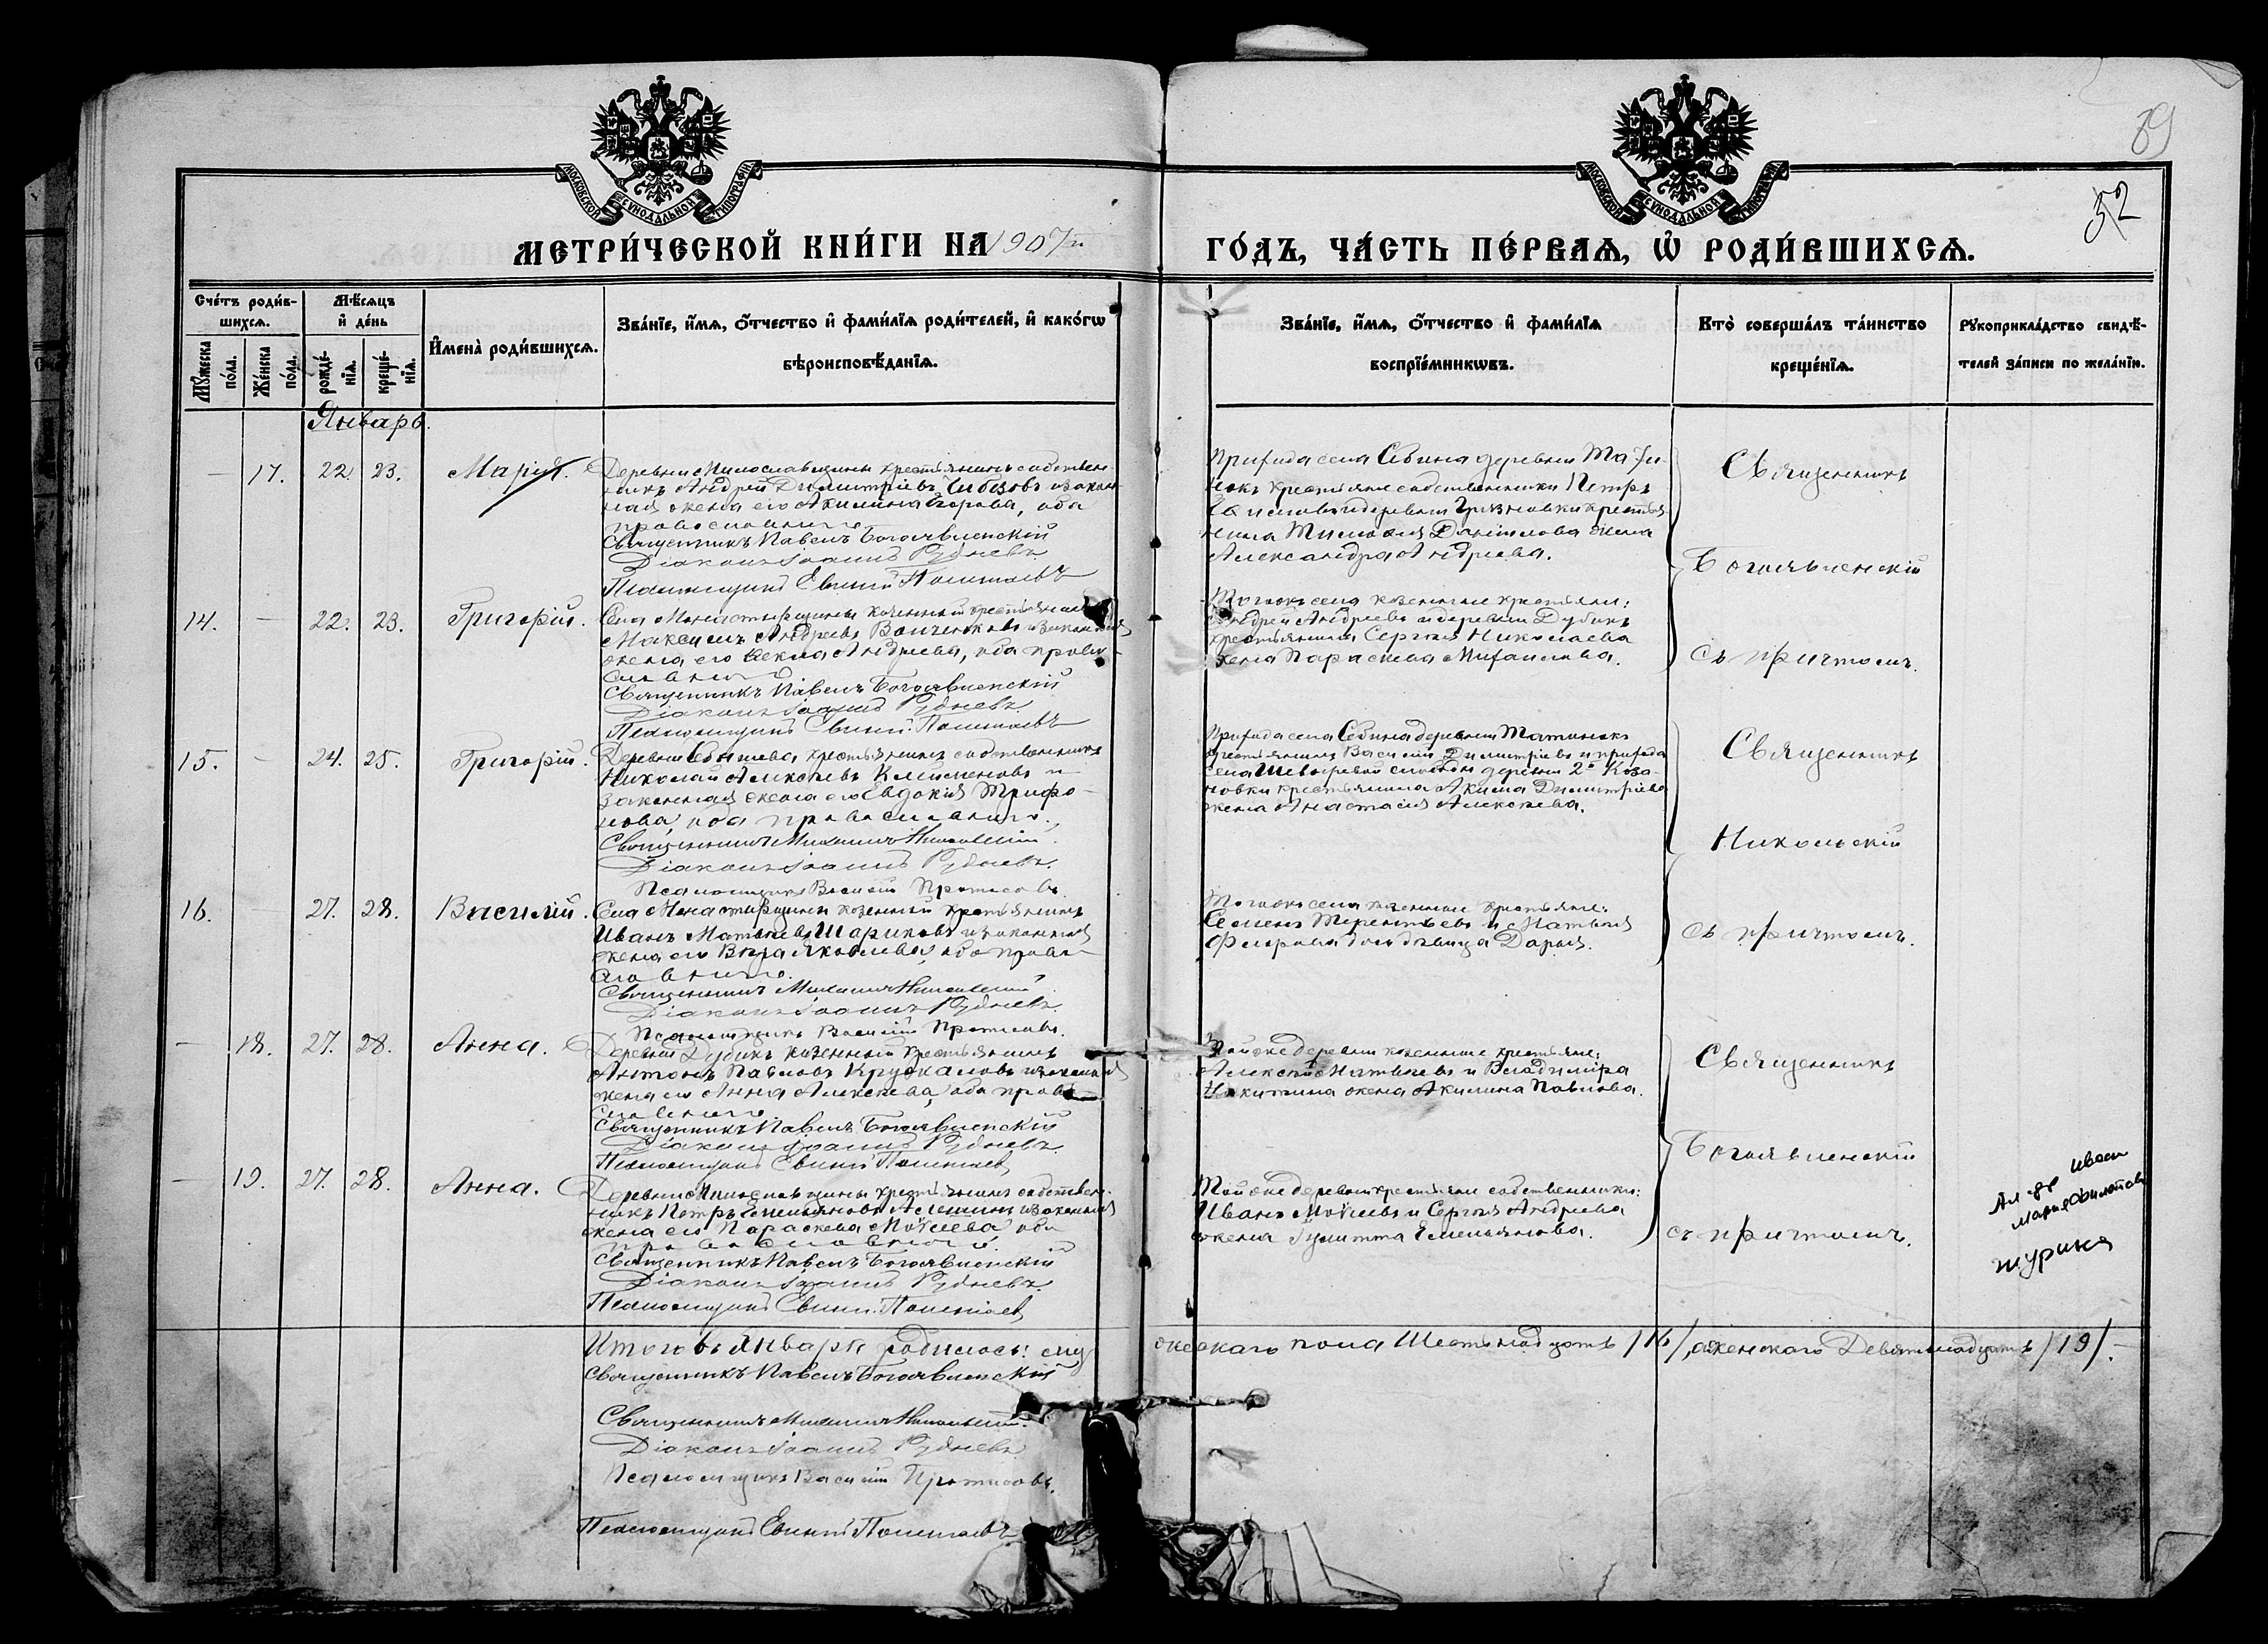 89
52
МОСКОВСКОЙ СѴНОДАЛЬНОЙ ТИПОГРАФІИ
МОСКОВСКОЙ СѴНОДАЛЬНОЙ ТИПОГРАФІИ
МЕТРИ́ЧЕСКОЙ КНИ́ГИ НА 1907й ГО́ДЪ, ЧА́СТЬ ПЕ́РВАѦ, Ѿ РОДИ́ВШИХСѦ.
Сче́тъ роди́в-
шихсѧ.
Мꙋ́жеска по́ла.
Же́нска по́ла.
Мѣ́сѧцъ
и҆ де́нь
рожде́-
нїѧ.
креще́-
нїѧ.
И҆мена̀ роди́вшихсѧ.
Зва́нїе, и҆́мѧ, ѻ҆́тчество и҆ фами́лїѧ роди́телей, и҆ како́гѡ
вѣроисповѣ́данїѧ.
Зва́нїе, и҆́мѧ, ѻ҆́тчество и҆ фами́лїѧ
воспрїе́мникѡвъ.
Кто̀ соверша́лъ та́инство
креще́нїѧ.
Рꙋкоприкла́дство свидѣ́-
телей за́писи по жела́нїю.
Январь.
— 17. 22. 23. Марія.
Деревни Милославщины крестьянинъ собствен-
никъ Андрей Димитріевъ Чибизовъ и закон-
ная жена его Акилина Егорова, оба
православнаго.
Священникъ Павелъ Богоявленскій
Діаконъ Іоаннъ Рудневъ
Псаломщикъ Евгеній Полетаевъ
Прихода села Себина деревни Тати-
нокъ крестьяне собственники Петръ
деревни Грязновки крестья-
нина Данилова жена
Александра Андреева.
Священникъ
Богоявленскій
съ причтомъ.
14. — 22. 23. Григорій.
Села Монастырщины казенный крестьянинъ
Максимъ Андреевъ и законная
жена его Ѳекла Андреева, оба право-
славнаго
Священникъ Павелъ Богоявленскій
Діаконъ Іоаннъ Рудневъ
Псаломщикъ Евгеній Полетаевъ
Того же села казенные крестьяне:
Андрей Андреевъ и деревни Дубикъ
крестьянина Сергія Николаева
жена Параскева Михаилова.
15. — 24. 25. Григорій.
Деревни крестьянинъ собственникъ
Николай Алексѣевъ Клейменовъ и
законная жена его Евдокія Трифо-
нова, оба православнаго.
Священникъ Михаилъ Никольскій
Діаконъ Іоаннъ Рудневъ.
Псаломщикъ Василій Протасовъ.
Прихода села Себина деревни Татинокъ
крестьянинъ Василій Димитріевъ и прихода
села деревни 2й Каза-
новки крестьянина Акима Димитріева
жена Анастасія Алексѣева.
Священникъ
Никольскій
съ причтомъ.
16. 27. 28. Василій.
Села Монастырщины казенный крестьянинъ
Иванъ Матвѣевъ Шариковъ и законная
жена его Вѣра Яковлева, оба право-
славнаго.
Священникъ Михаилъ Никольскій
Діаконъ Іоаннъ Рудневъ
Псаломщикъ Василій Протасовъ.
Того же села казенные крестьяне:
Семенъ Терентьевъ и
дочь дѣвица Дарья.
— 18. 27. 28. Анна.
Деревни Дубикъ казенный крестьянинъ
Антонъ Павловъ и законная
жена его Анна Алексѣева, оба право-
славнаго.
Священникъ Павелъ Богоявленскій
Діаконъ Іоаннъ Рудневъ.
Псаломщикъ Евгеній Полетаевъ
Той же деревни казенные крестьяне:
Алексѣй Матвѣевъ и Владиміра
Никитина жена Акилина Павлова.
Священникъ
Богоявленскій
съ причтомъ.
— 19. 27. 28. Анна.
Деревни Милославщины крестьянинъ собствен-
никъ Петръ Емельяновъ Алешинъ и законная
жена его Параскева Моисеева, оба
православнаго.
Священникъ Павелъ Богоявленскій
Діаконъ Іоаннъ Рудневъ.
Псаломщикъ Евгеній Полетаевъ
Той же деревни крестьяне собственники:
Иванъ Моисеевъ и Сергія Андреева
жена Улитта Емельянова.
Итого въ Январѣ родилось: мужескаго пола Шестьнадцать /16/, а женскаго Девятьнадцать /19/.
Священникъ Павелъ Богоявленскій
Священникъ Михаилъ Никольскій.
Діаконъ Іоаннъ Рудневъ
Псаломщикъ Василій Протасовъ.
Псаломщикъ Евгеній Полетаевъ